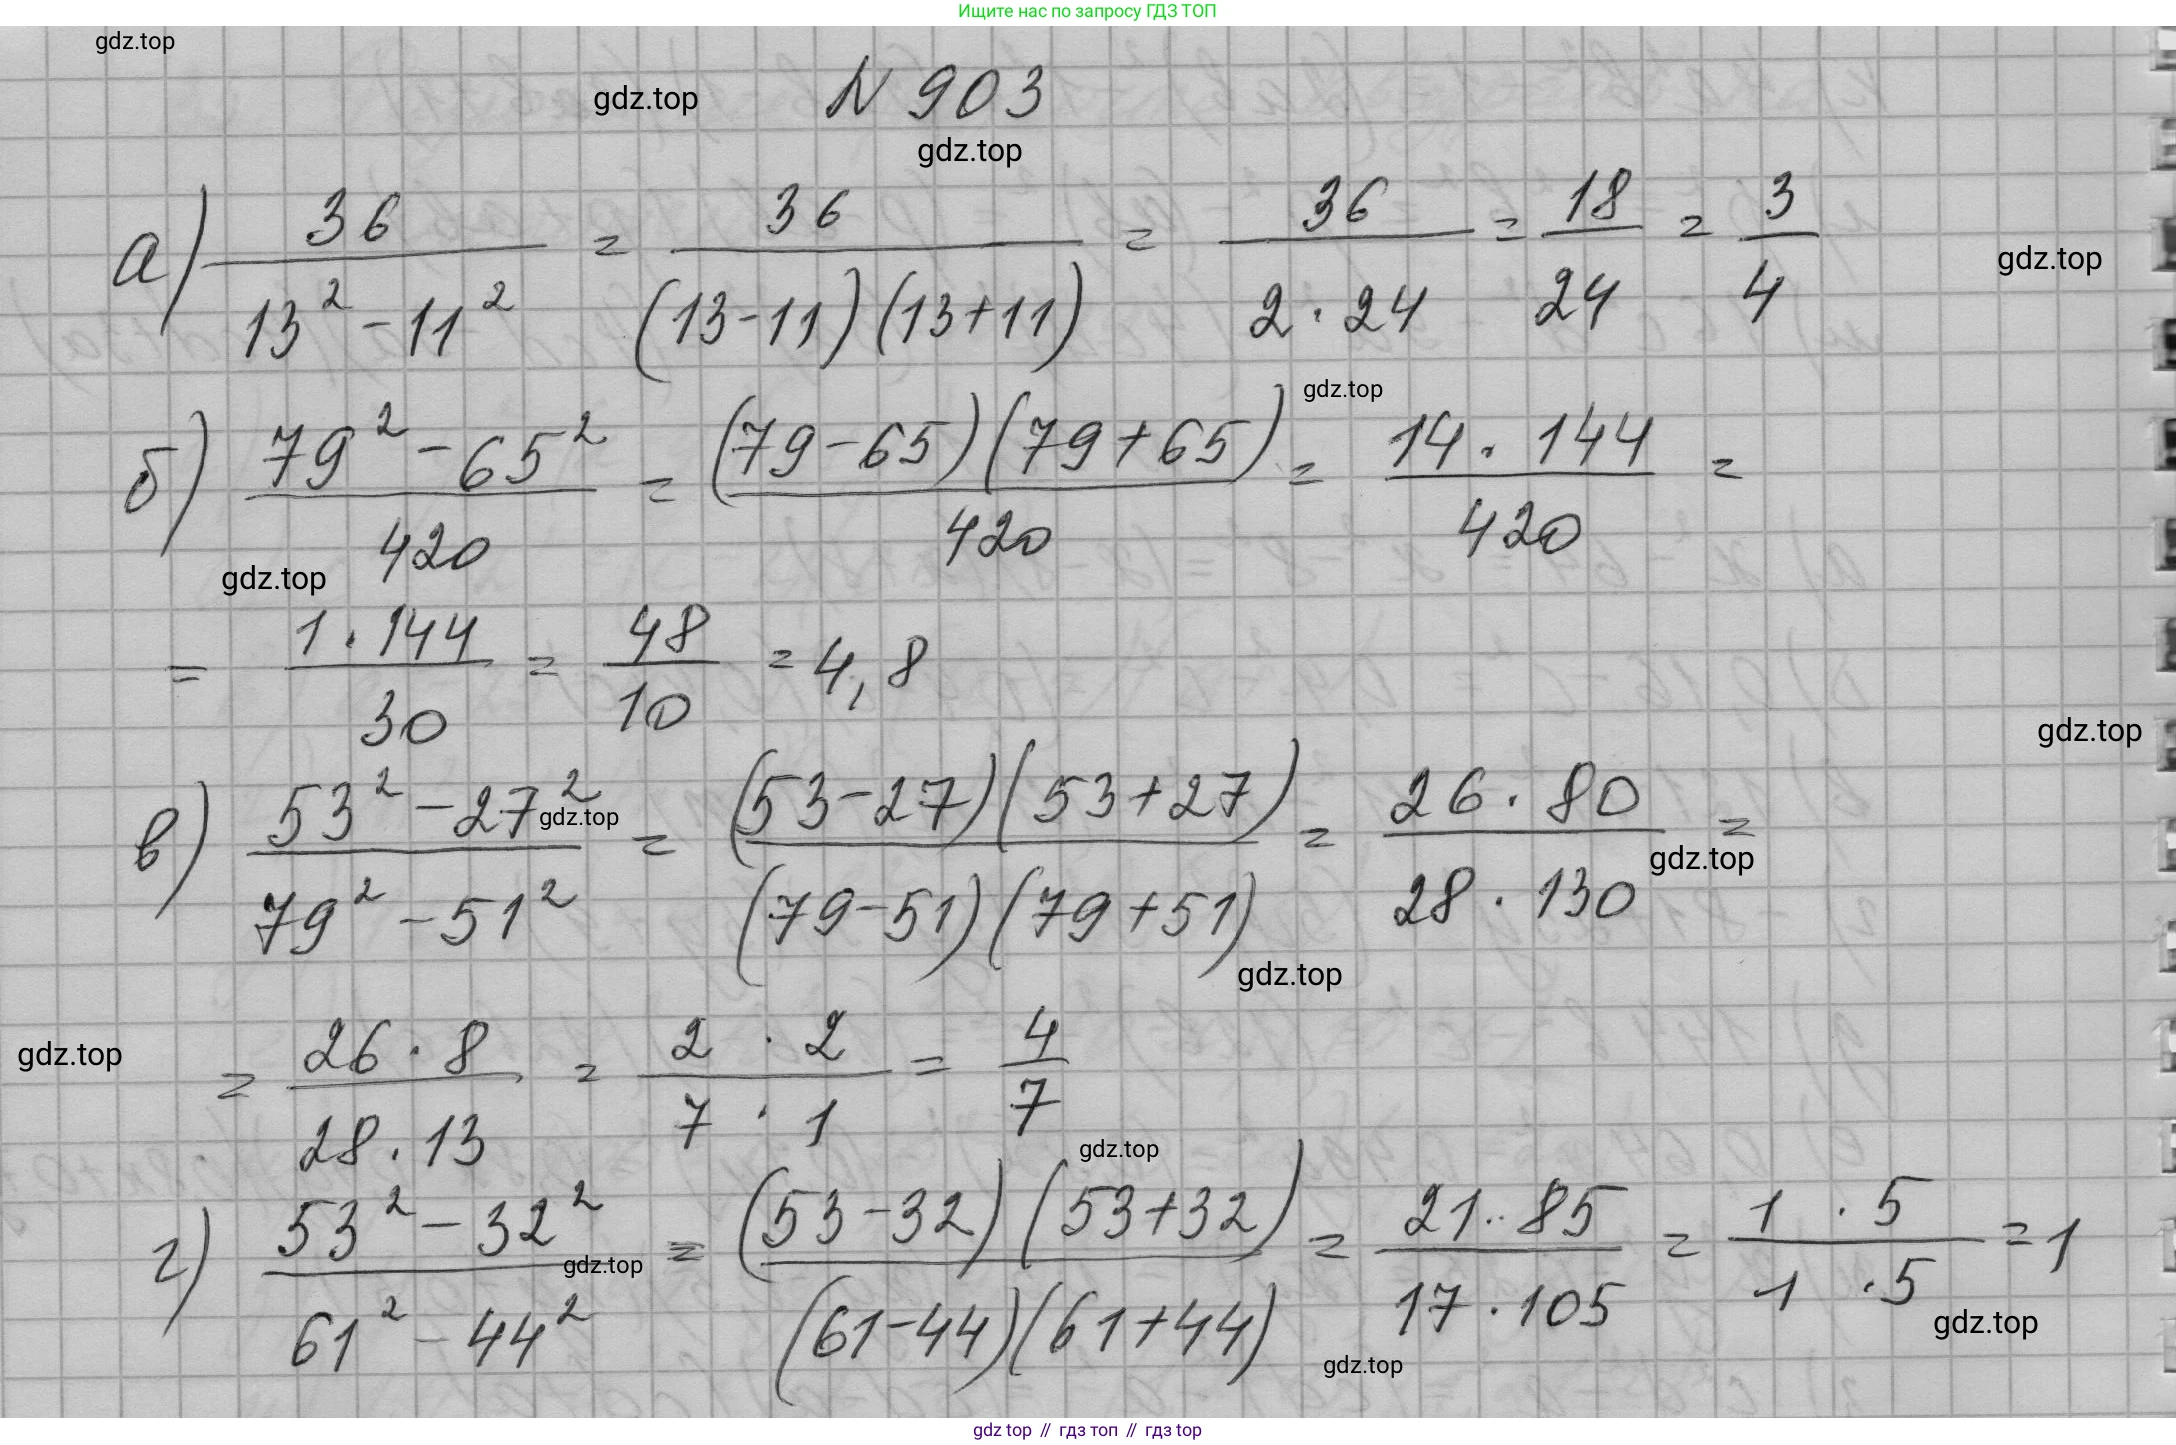 Ищите нас по запросу ГДЗ ТОП
gdz.top
gdz.top
N 903
gdz.top
а) 36 / (13² - 11²) = 36 / ((13-11)(13+11)) = 36 / (2 · 24) = 18/24 = 3/4
gdz.top
gdz.top
б) (79² - 65²) / 420 = ((79-65)(79+65)) / 420 = (14 · 144) / 420 =
gdz.top
= (1 · 144) / 30 = 48/10 = 4,8
gdz.top
в) (53² - 27²) / (79² - 51²) = ((53-27)(53+27)) / ((79-51)(79+51)) = (26 · 80) / (28 · 130) =
gdz.top
gdz.top
gdz.top
gdz.top
= (26 · 8) / (28 · 13) = (2 · 2) / (7 · 1) = 4/7
gdz.top
г) (53² - 32²) / (61² - 44²) = ((53-32)(53+32)) / ((61-44)(61+44)) = (21 · 85) / (17 · 105) = (1 · 5) / (1 · 5) = 1
gdz.top
gdz.top
gdz.top
gdz top // гдз топ // gdz top